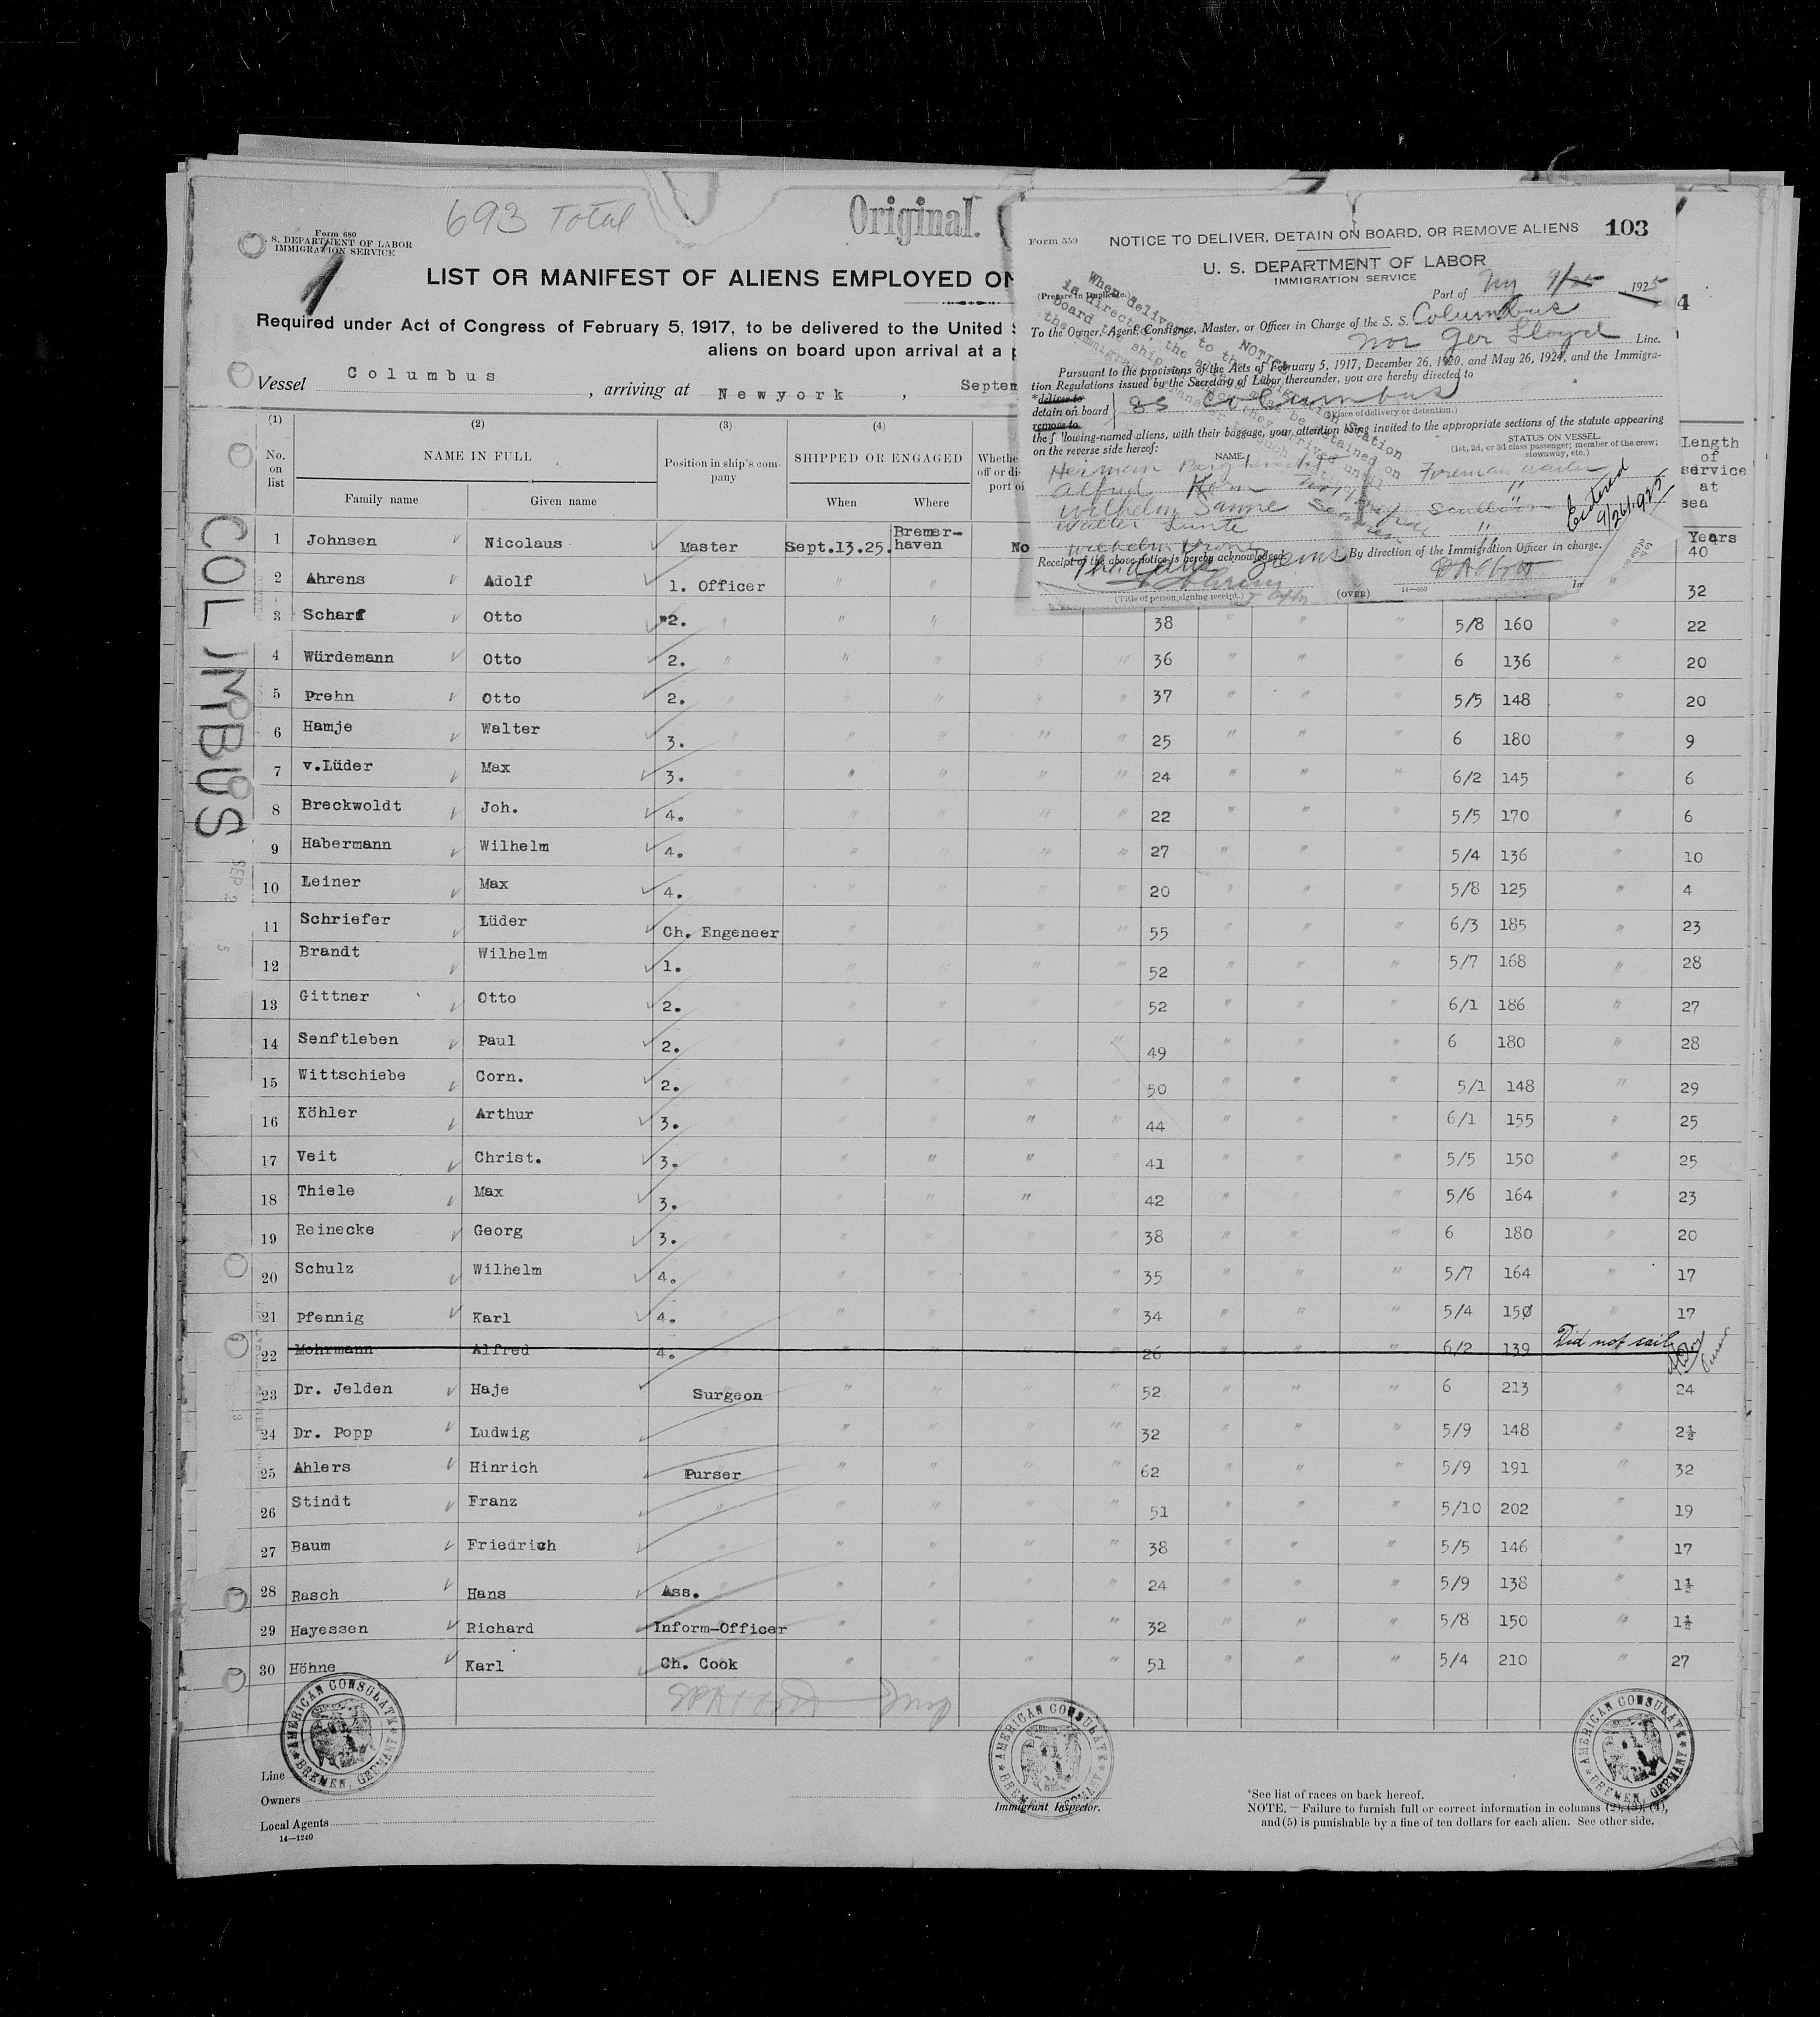 693 Total
Original.
Form 680
U. S. DEPARTMENT OF LABOR
IMMIGRATION SERVICE
1
LIST OR MANIFEST OF ALIENS EMPLOYED ON
Required under Act of Congress of February 5, 1917, to be delivered to the United S
aliens on board upon arrival at a p
Vessel Columbus, arriving at Newyork, Septem
4
Form 559 NOTICE TO DELIVER, DETAIN ON BOARD, OR REMOVE ALIENS 103
U. S. DEPARTMENT OF LABOR
IMMIGRATION SERVICE
(Prepare in Duplicate.)
Port of Ny 9/25, 1925
To the Owner, Agent, Consignee, Master, or Officer in Charge of the S. S. Columbus
Nor Ger Lloyd Line.
Pursuant to the provisions of the Acts of February 5, 1917, December 26, 1920, and May 26, 1924, and the Immigra-
tion Regulations issued by the Secretary of Labor thereunder, you are hereby directed to
*deliver to
detain on board SS Columbus
remove to
(Place of delivery or detention.)
the following-named aliens, with their baggage, your attention being invited to the appropriate sections of the statute appearing
on the reverse side hereof:
NAME. STATUS ON VESSEL.
(1st, 2d, or 3d class passenger; member of the crew;
stowaway, etc.)
Herman Foreman waiter
Alfred Horn "
Wilhelm Sanne Scullion
Walter Lunte "
Wilhelm "
Entered
9/26/1925
Receipt of the above notice is hereby acknowledged. By direction of the Immigration Officer in charge.
(Title of person signing receipt.) (OVER) 14—960
NOTICE
(1) (2) (3) (4)
No. on list NAME IN FULL Position in ship's com-pany SHIPPED OR ENGAGED Length of service at sea
Family name Given name When Where
Years
1 Johnsen Nicolaus Master Sept.13.25. Bremer-haven No 40
2 Ahrens Adolf 1. Officer " " 32
3 Scharf Otto 2. " " " 38 " " " 5/8 160 " 22
4 Würdemann Otto 2. " " " " " 36 " " " 6 136 " 20
5 Prehn Otto 2. " " " " " 37 " " " 5/5 148 " 20
6 Hamje Walter 3. " " " " " 25 " " " 6 180 " 9
7 v.Lüder Max 3. " " " " " 24 " " " 6/2 145 " 6
8 Breckwoldt Joh. 4. " " " " " 22 " " " 5/5 170 " 6
9 Habermann Wilhelm 4. " " " " " 27 " " " 5/4 136 " 10
10 Leiner Max 4. " " " " " 20 " " " 5/8 125 " 4
11 Schriefer Lüder Ch. Engeneer " " " " 55 " " " 6/3 185 " 23
12 Brandt Wilhelm 1. " " " " " 52 " " " 5/7 168 " 28
13 Gittner Otto 2. " " " " " 52 " " " 6/1 186 " 27
14 Senftleben Paul 2. " " " " " 49 " " " 6 180 " 28
15 Wittschiebe Corn. 2. " " " " " 50 " " " 5/1 148 " 29
16 Köhler Arthur 3. " " " " " 44 " " " 6/1 155 " 25
17 Veit Christ. 3. " " " " " 41 " " " 5/5 150 " 25
18 Thiele Max 3. " " " " " 42 " " " 5/6 164 " 23
19 Reinecke Georg 3. " " " " " 38 " " " 6 180 " 20
20 Schulz Wilhelm 4. " " " " " 35 " " " 5/7 164 " 17
21 Pfennig Karl 4. " " " " " 34 " " " 5/4 150 " 17
22 Mohrmann Alfred 4. 26 " 6/2 139 Did not sail
23 Dr. Jelden Haje Surgeon " " " " 52 " " " 6 213 " 24
24 Dr. Popp Ludwig " " " " 32 " " " 5/9 148 " 2½
25 Ahlers Hinrich Purser " " " " 62 " " " 5/9 191 " 32
26 Stindt Franz " " " " " 51 " " " 5/10 202 " 19
27 Baum Friedrich " " " " " 38 " " " 5/5 146 " 17
28 Rasch Hans Ass. " " " " " 24 " " " 5/9 138 " 1½
29 Hayessen Richard Inform-Officer " " " " 32 " " " 5/8 150 " 1½
30 Höhne Karl Ch. Cook " " " " 51 " " " 5/4 210 " 27
COLUMBUS
AMERICAN CONSULATE
BREMEN, GERMANY
AMERICAN CONSULATE
BREMEN, GERMANY
AMERICAN CONSULATE
BREMEN, GERMANY
Line
Owners
Local Agents
14—1240
Immigrant Inspector.
*See list of races on back hereof.
NOTE.—Failure to furnish full or correct information in columns (2), (3), (4),
and (5) is punishable by a fine of ten dollars for each alien. See other side.